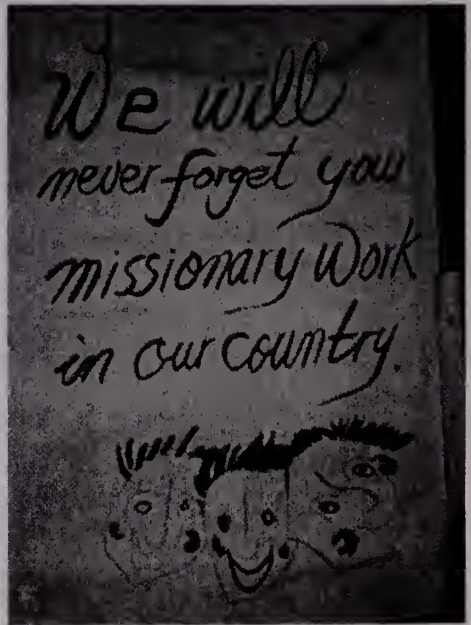 We will
never forget you
missionary work
in our country